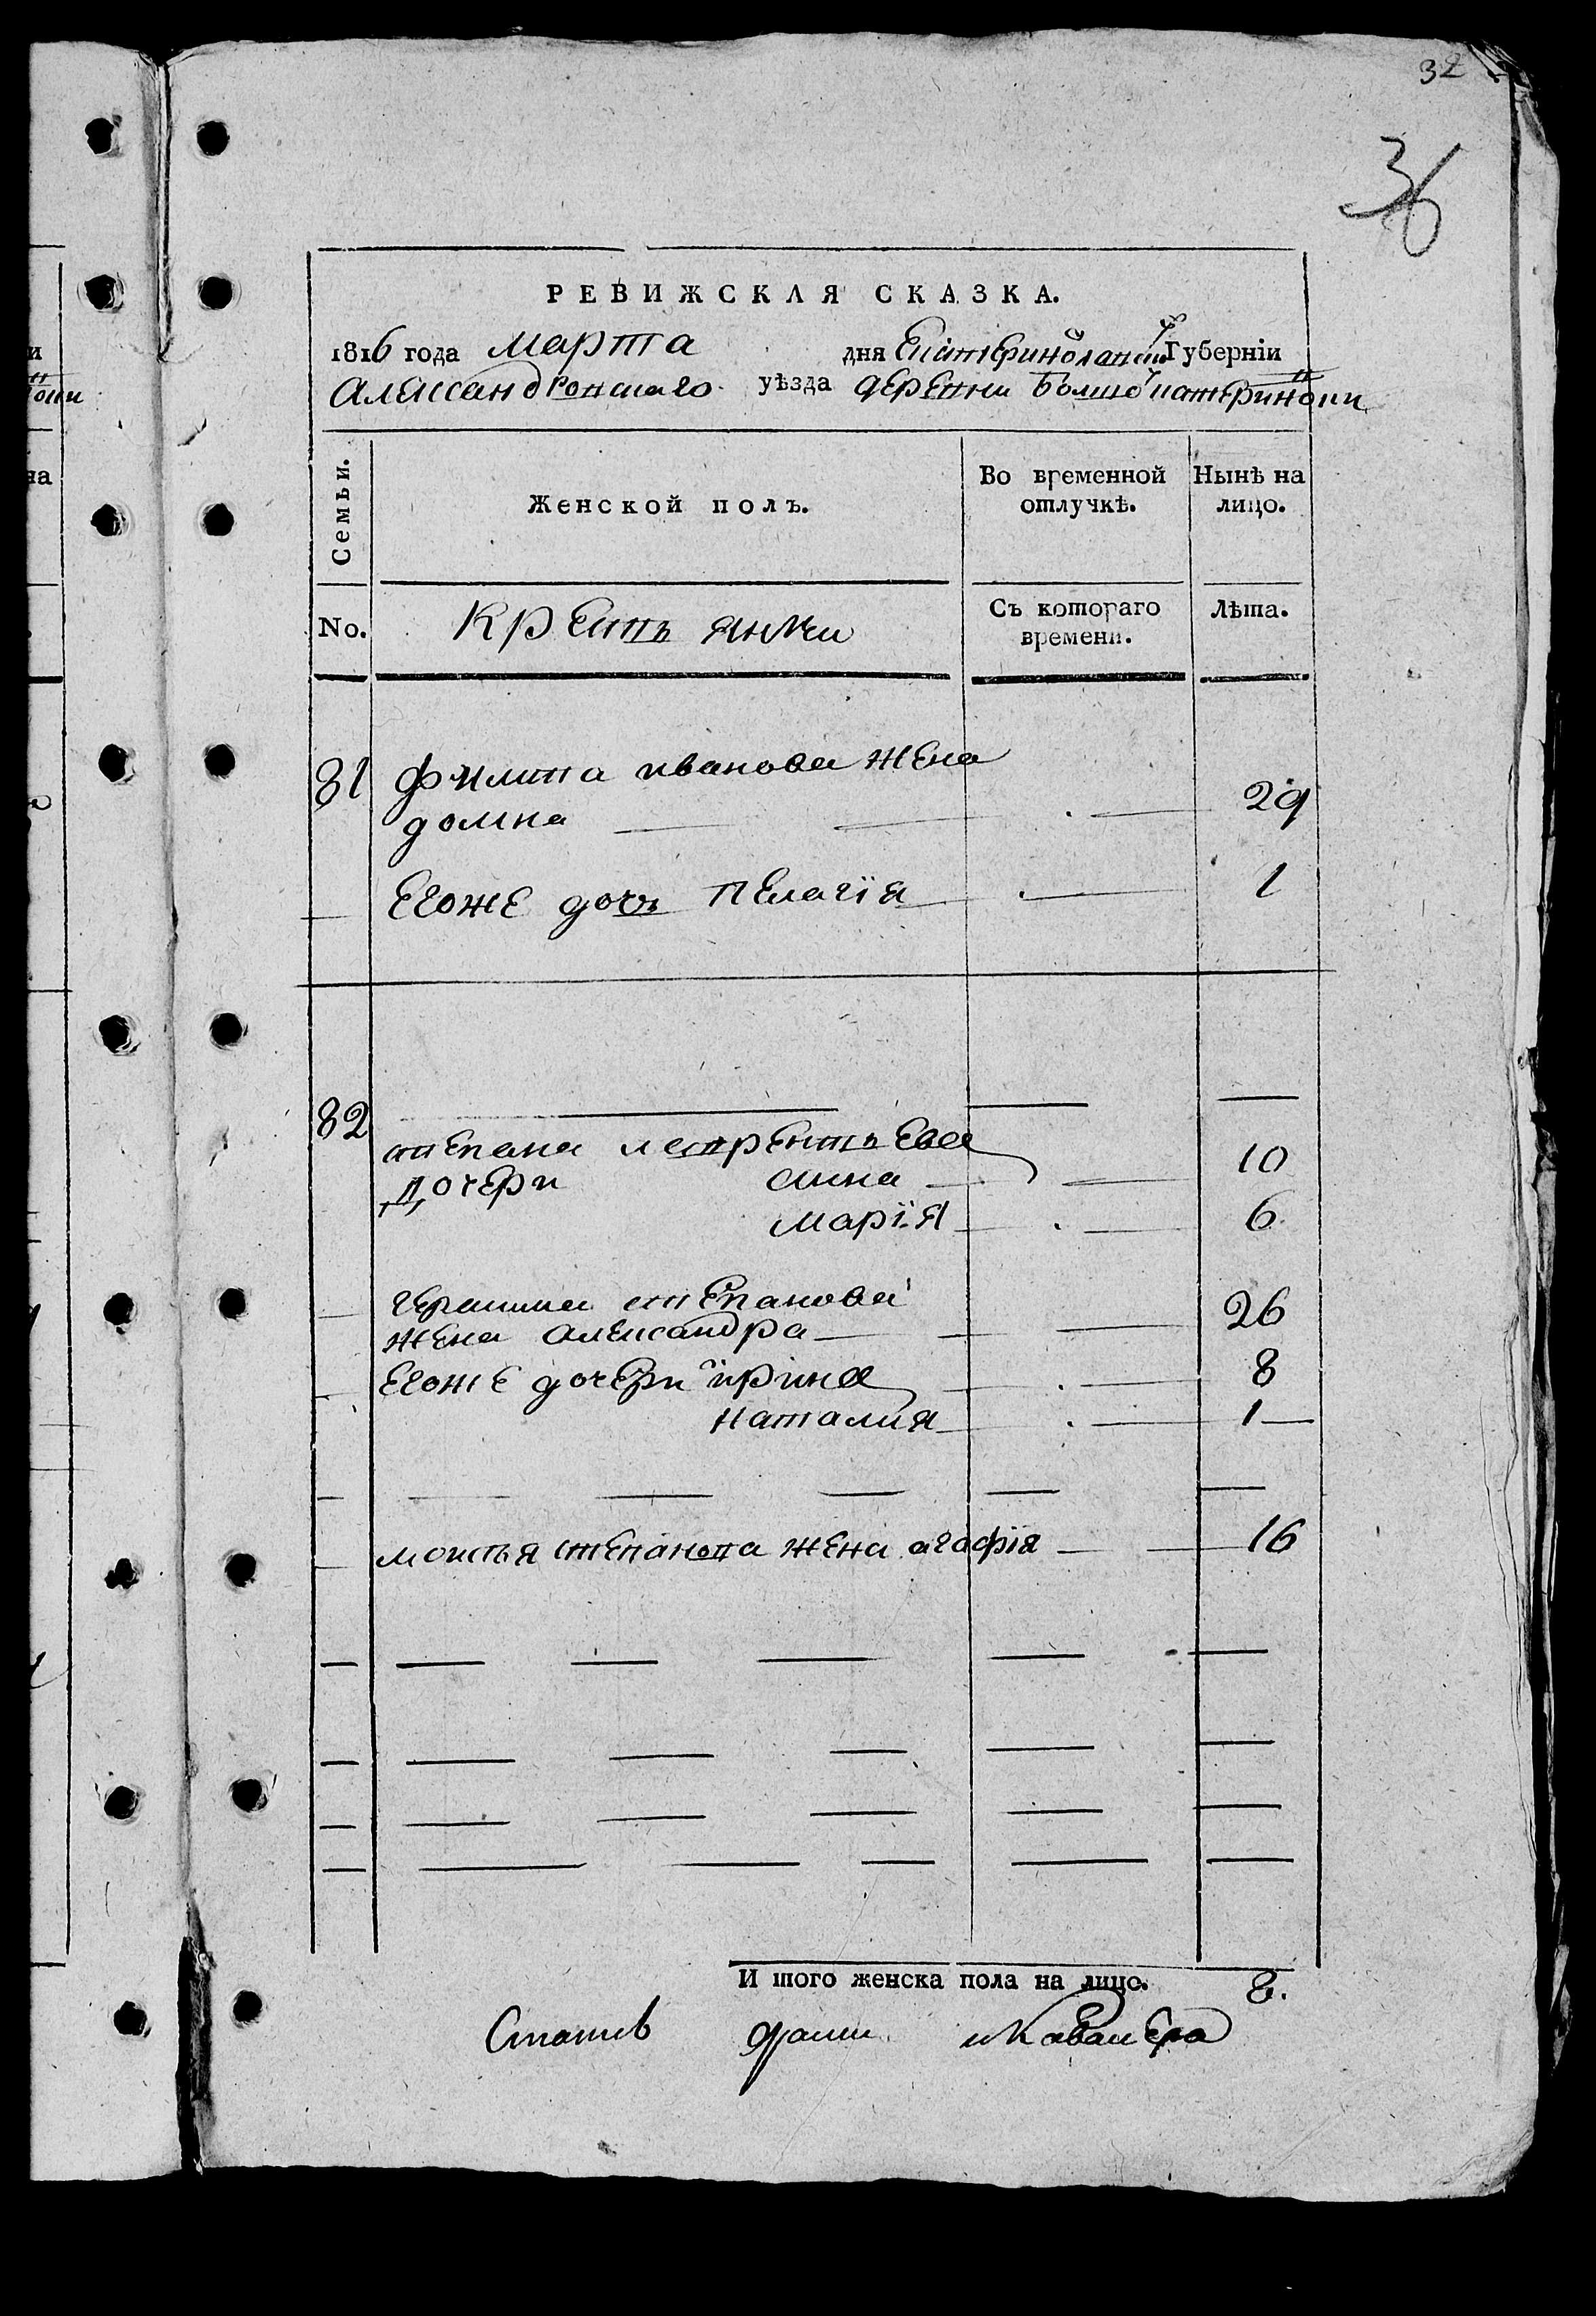 32
36
РЕВИЖСКАЯ СКАЗКА.
1816 года марта дня Екатеринославской Губернїи
Александровскаго уѣзда деревни
Семьи.
Женской полъ.
Во временной отлучкѣ.
Нынѣ на лицо.
No.
Крестьянки
Съ котораго времени.
Лѣта.
81 Филипа иванова жена
домна 29
Егоже дочь Пелагїя 1
82
степана лаврентьева
дочери анна 10
марїя 6
степанова 26
жена александра
Егоже дочери їрина 8
наталия 1
моисѣя степанова жена агафїя 16
И того женска пола на лицо. 8.
и кавалера